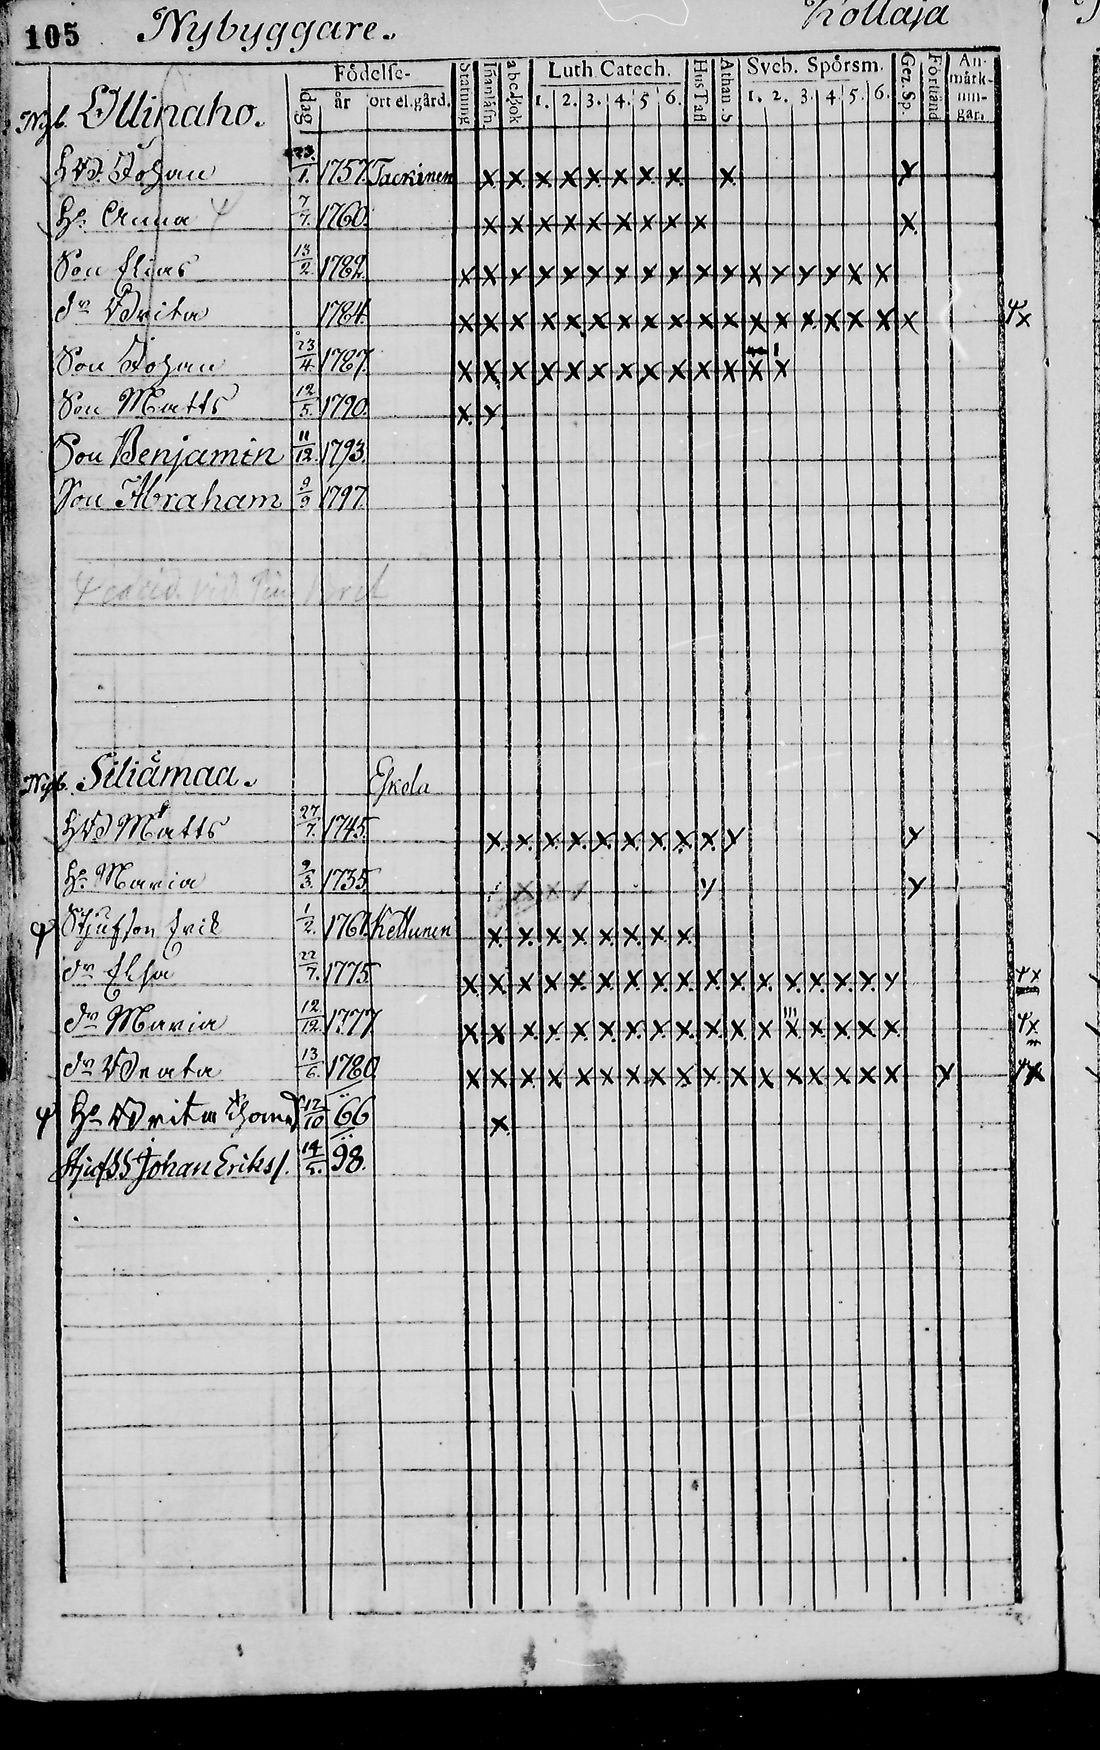 105 Nybyggare. Kollaja
Födelse-
dag år ort el. gård.
Stafning Innanläsn. abcdbok Luth Catech. 1. 2. 3. 4. 5 6. Hus Tafl Athan. S Sveb. Spörsm. 1. 2. 3. 4. 5. 6. Gez. Sp. Förstånd. An-märk-nin-gar.
Nyb. Ollinaho.
Johan 1. 1757 Tackinen x x x x x x x x x x
Hu Anna 7/7. 1760. x x x x x x x x x x
Son Elias 13/2. 1782. x x x x x x x x x x x x x x x x x
dr Brita 1784. x x x x x x x x x x x x x x x x x x x
Son Johan 23/4. 1787. x x x x x x x x x x x x x
Son Matts 12/5. 1790. x x
Son Benjamin 11/12. 1793.
Son Abraham 9/9 1797.
Nyb. Siliämaa. Eskola
Matts 27/7. 1745. x x x x x x x x x x x
Hu Maria 9/3. 1735. x x x x x
Stjufson Erik 1/2. 1761. Kettunen x x x x x x x x
dr Elsa 22/7. 1775. x x x x x x x x x x x x x x x x x x
dr Maria 12/12. 1777 x x x x x x x x x x x x x x x x x x
dr Beata 13/6. 1780 x x x x x x x x x x x x x x x x x x x
Hu Brita 12/10 66 x
Johan Eriks/. 14/5. 98.